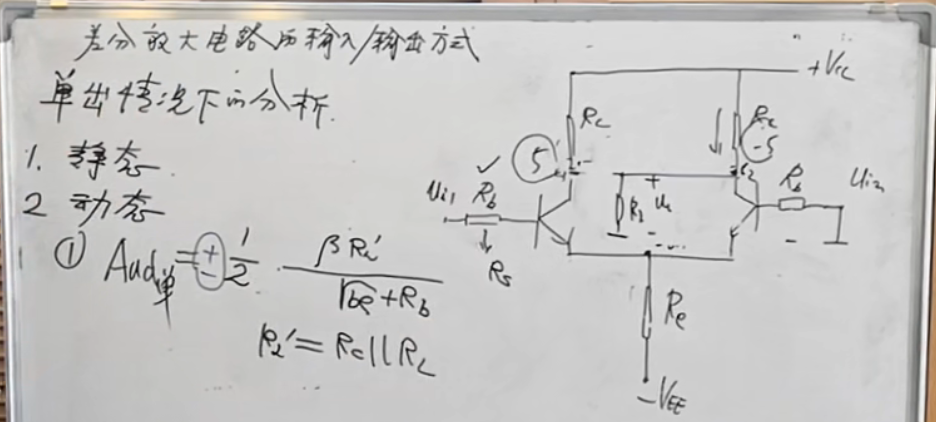 差分放大电路的输入/输出方式
单出情况下的分析.
1. 静态
2 动态
① Aud单 = ± 1/2 · βRL'/(rbe+Rb)
RL' = Rc||RL
+Vcc
Rc
Rc
5
-5
ui1
Rb
✓
Rs
RL
+
-
Rb
ui2
-
Re
-VEE